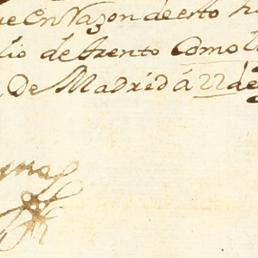 ue en Razon de esto h
lio de trento Como l
De Madrid á 22 de